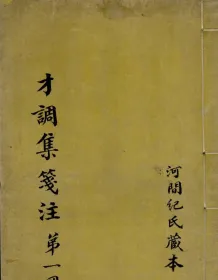 才調集箋注 第一
河間紀氏藏本